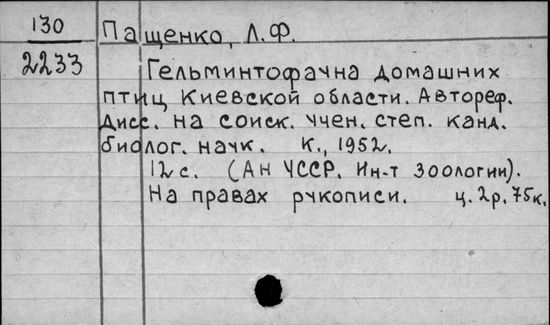 130 Пащенко, Л.Ф.
2233 Гельминтофауна домашних
птиц Киевской области. Автореф.
Дисс. на соиск. учен. степ. канд.
биолог. наук. К., 1952.
12 с. (АН УССР. Ин-т Зоологии).
На правах рукописи. ц. 2р. 75к.